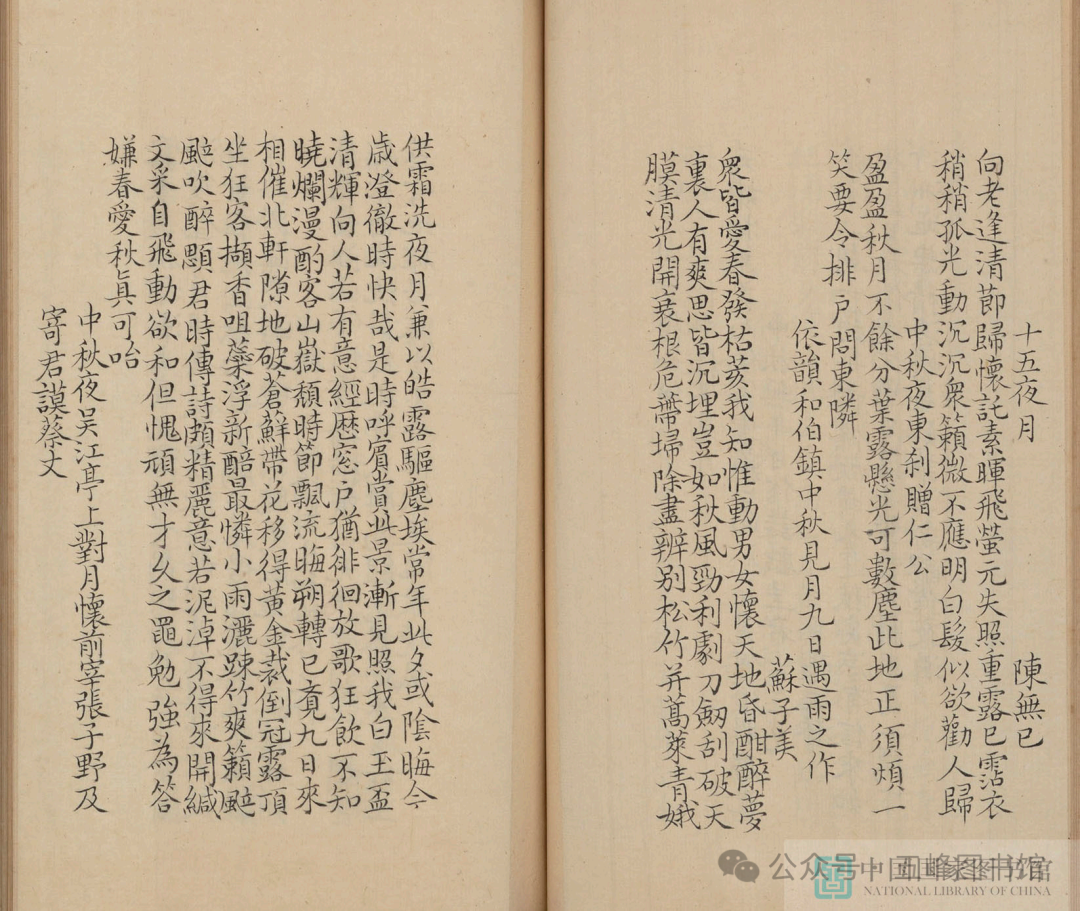 十五夜月
陳無已
向老逢清節歸懷託素暉飛螢元失照重露已霑衣
稍稍孤光動沉沉衆籟微不應明白髮似欲勸人歸
中秋夜東刹贈仁公
盈盈秋月不餘分葉露懸光可數塵此地正須煩一
笑要令排戶問東隣
依韻和伯鎮中秋見月九日遇雨之作
蘇子美
衆皆愛春發枯荄我知惟動男女懷天地昏酣醉夢
裏人有爽思皆沉埋豈如秋風勁利劇刀劒刮破天
膜清光開衰根危蔕埽除盡辨別松竹并蒿萊青娥
供霜洗夜月兼以皓露驅塵埃常年此夕或陰晦今
歲澄徹時快哉是時呼賓賞此景漸見照我白玉盃
清輝向人若有意經歷窓戶猶徘徊放歌狂飲不知
曉爛漫酌客山嶽頹時節飄流晦朔轉已竟九日來
相催北軒隙地破蒼蘚帶花移得黃金裁倒冠露頂
坐狂客擷香咀蘂浮新醅最憐小雨灑踈竹爽籟颼
颼吹醉顋君時傳詩頗精麗意若泥淖不得來開緘
文采自飛動欲和但愧頑無才久之黽勉強為答
嫌春愛秋真可咍
中秋夜吴江亭上對月懷前宰張子野及
寄君謨蔡丈
公众号·五峰图书馆
中国国家图书馆
NATIONAL LIBRARY OF CHINA